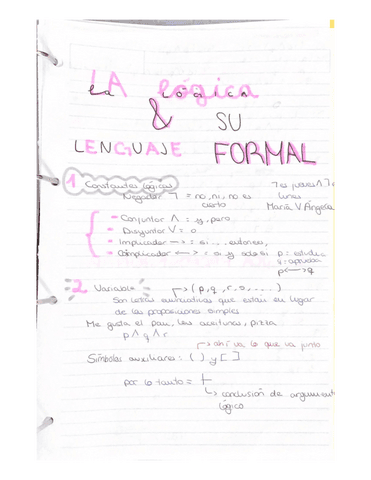 LA lógica
La lógica
& SU
LENGUAJE FORMAL
1 Constantes lógicas
Negador ¬ = no, ni, no es cierto
¬ es jueves ∧ ¬ es lunes
María V Ángela
- Conjuntor ∧ = y, pero
- Disyuntor V = o
- Implicador —> = si... entonces,
- Coimplicador <—> = si y solo si
p = estudiar
q = aprobar
p <—> q
2 Variable (p, q, r, s, ...)
Son letras enunciativas que están en lugar
de las proposiciones simples
Me gusta el pan, las aceitunas, pizza
p ∧ q ∧ r
ahí va lo que va junto
Símbolos auxiliares: ( ) y [ ]
por lo tanto = ⊢
conclusión de argumento
lógico